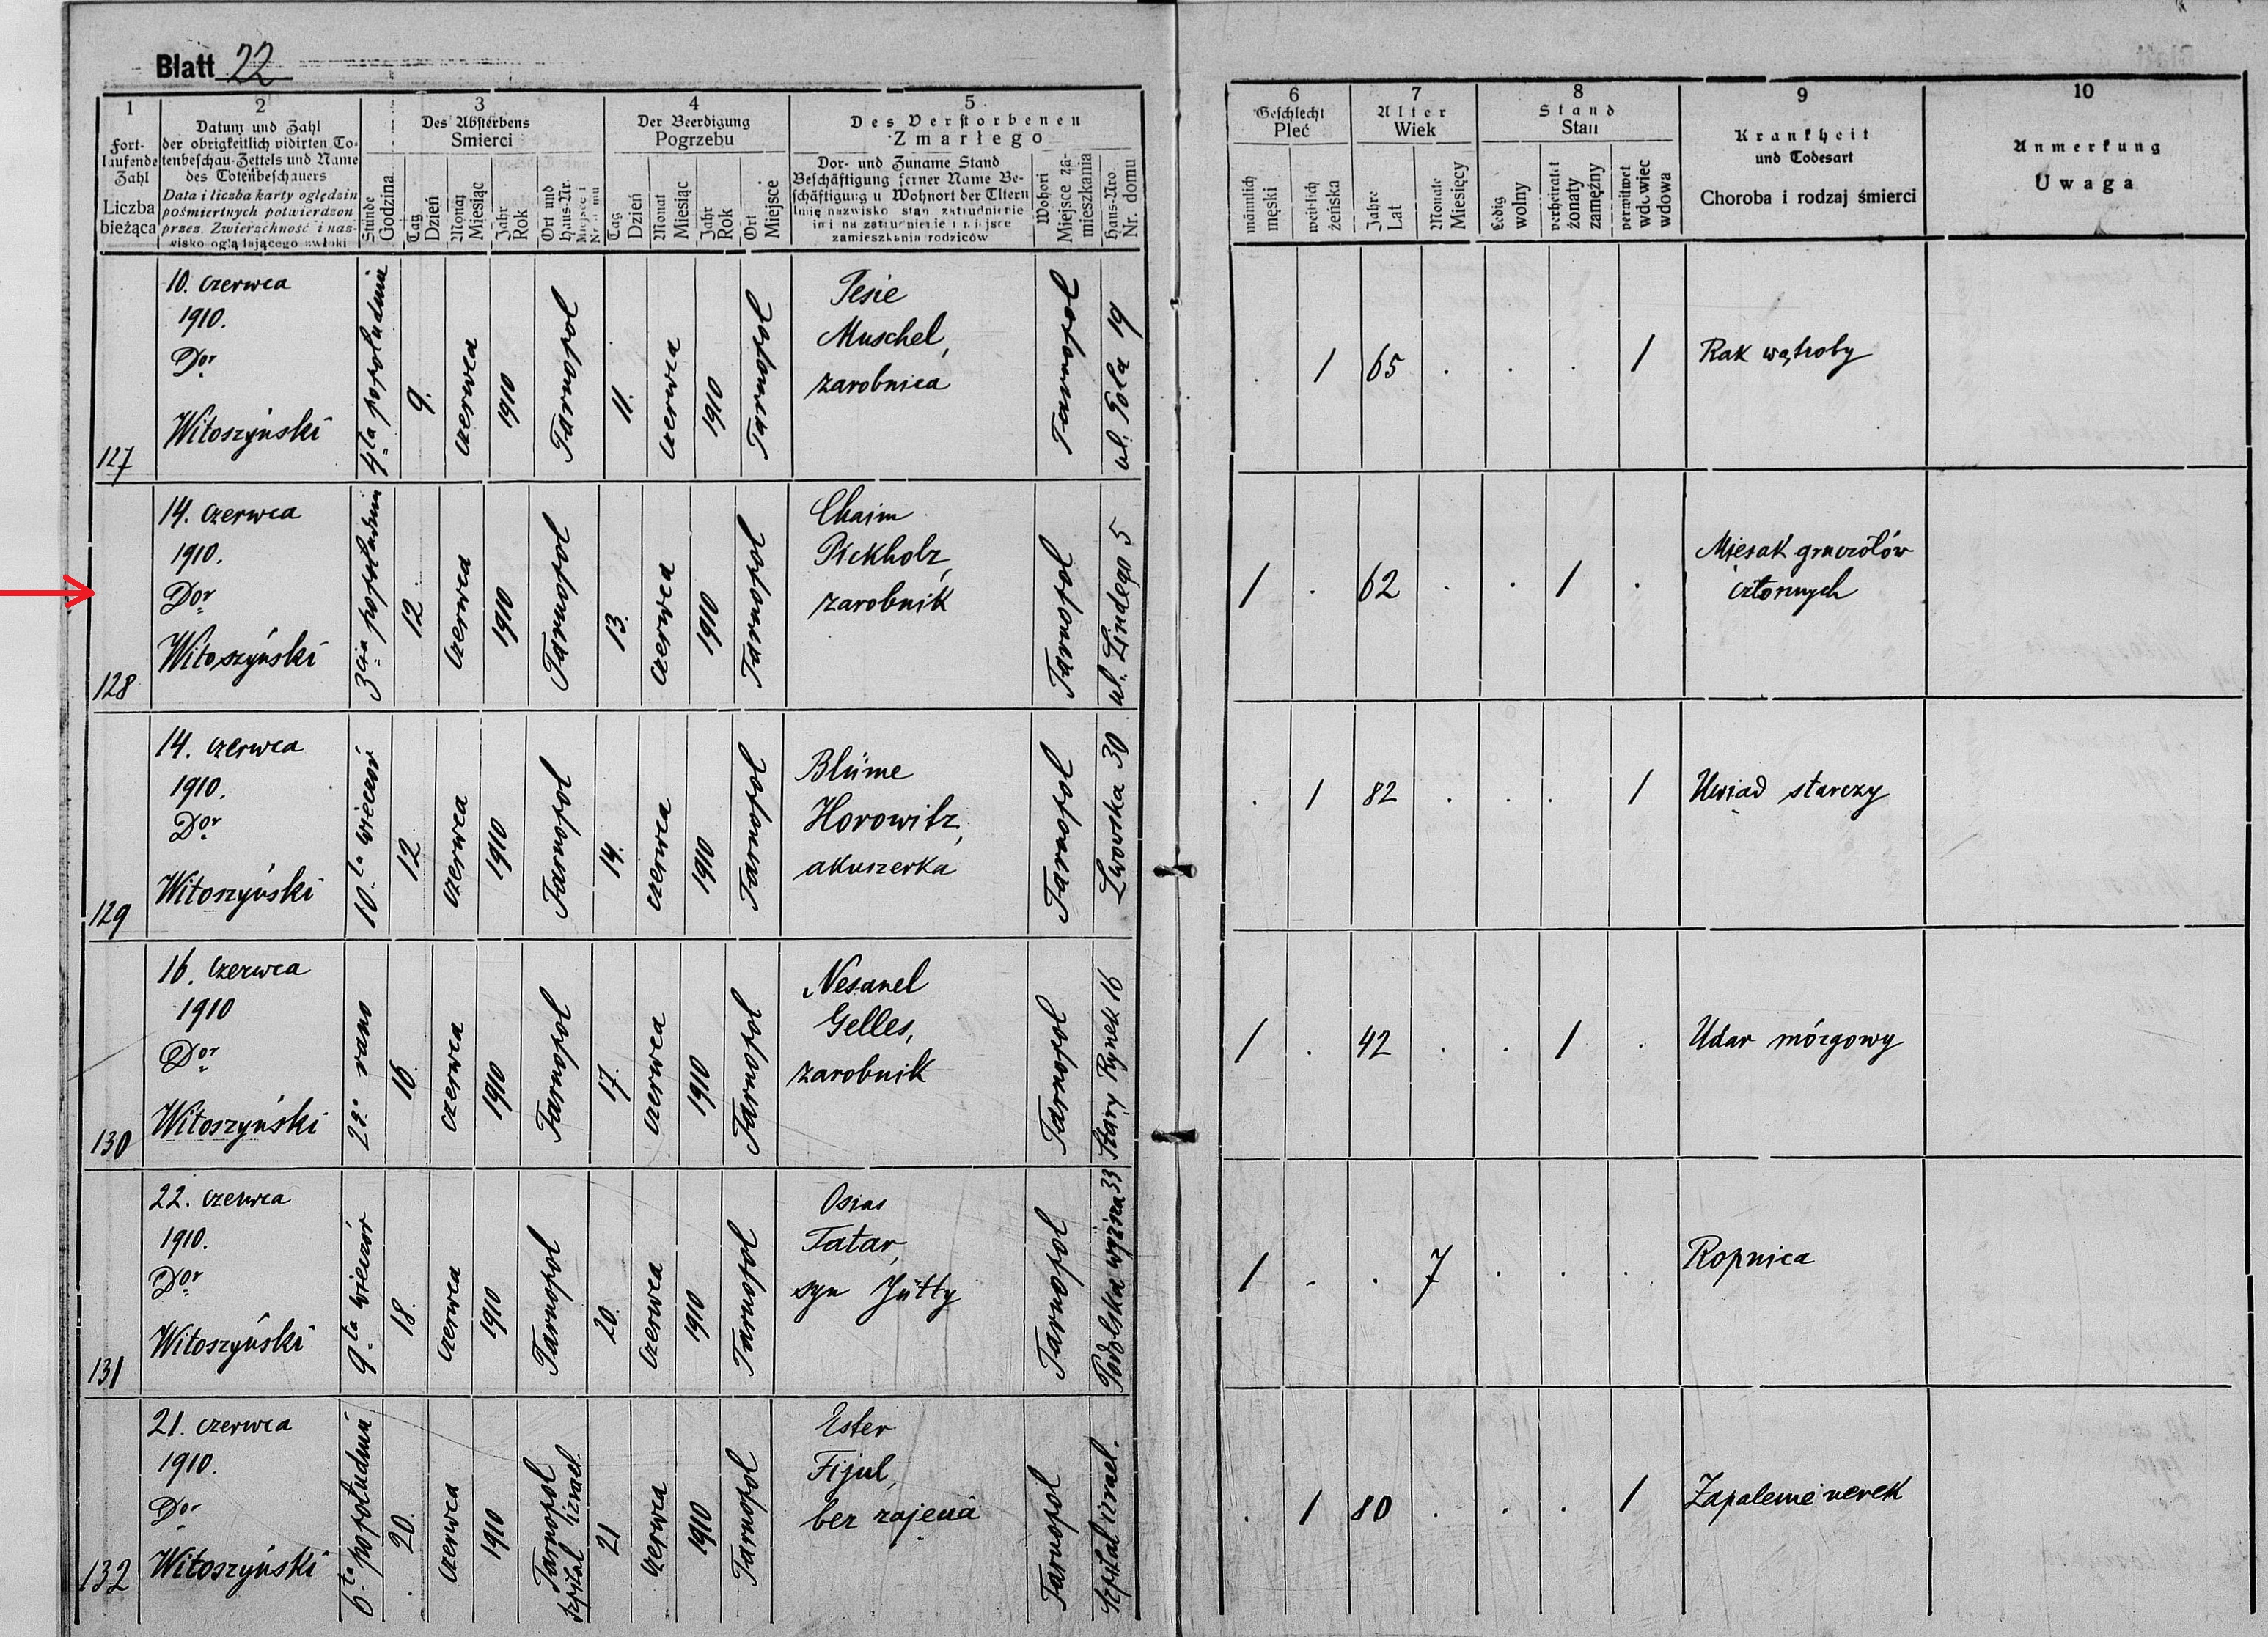 Blatt 22
1
Fort-
laufende
Zahl
Liczba
bieżąca
2
Datum und Zahl
der obrigkeitlich vidirten To-
tenbeschau-Zettels und Name
des Totenbeschauers
Data i liczba karty oględzin
pośmiertnych potwierdzon
przez. Zwierzchność i naz-
wisko oglądającego zwłoki
3
Des Absterbens
Smierci
Stunde
Godzina
Tag
Dzień
Monat
Miesiąc
Jahr
Rok
Ort und
Haus-Nr.
4
Der Beerdigung
Pogrzebu
Tag
Dzień
Monat
Miesiąc
Jahr
Rok
Ort
Miejsce
5
Des Verstorbenen
Zmarłego
Vor- und Zuname Stand
Beschäftigung ferner Name Be-
schäftigung u Wohnort der Eltern
Imię nazwisko stan zatrudnienie
zamieszkania rodziców
Wohort
Miejsce za-
mieszkania
Haus-Nro.
Nr. domu
6
Geschlecht
Płeć
männlich
męski
weiblich
żeńska
7
Alter
Wiek
Jahre
Lat
Monate
Miesięcy
8
Stand
Stan
Ledig
wolny
verheiratet
żonaty
zamężny
verwitwet
wdowiec
wdowa
9
Krankheit
und Todesart
Choroba i rodzaj śmierci
10
Anmerkung
Uwaga
127
10. czerwca
1910.
Dor
Witoszyński
4ta popołudniu
9.
czerwca
1910
Tarnopol
11.
czerwca
1910
Tarnopol
Pesie
Muschel,
zarobnica
Tarnopol
ul. Pola 19
. / 65 . . . /
Rak wątroby
128
14. czerwca
1910.
Dor
Witoszyński
3cia popołudniu
12.
czerwca
1910
Tarnopol
13.
czerwca
1910
Tarnopol
Chaim
Pickholz,
zarobnik
Tarnopol
ul. Lindego 5
/ . 62 . . / .
Mięsak gruczołów
129
14. czerwca
1910.
Dor
Witoszyński
10ta wieczór
12.
czerwca
1910
Tarnopol
14.
czerwca
1910
Tarnopol
Blüme
Horowitz,
akuszerka
Tarnopol
Lwowska 30
. / 82 . . . /
Uwiąd starczy
130
16. czerwca
1910
Dor
Witoszyński
rano
16.
czerwca
1910
Tarnopol
17.
czerwca
1910
Tarnopol
Nesanel
Gelles,
zarobnik
Tarnopol
Stary Rynek 16
/ . 42 . . / .
Udar mózgowy
131
22. czerwca
1910.
Dor
Witoszyński
9ta wieczór
18.
czerwca
1910
Tarnopol
20.
czerwca
1910
Tarnopol
Osias
Tatar,
syn Jütty
Tarnopol
Podolska wyższa 33
/ . . 7 . . .
Ropnica
132
21. czerwca
1910.
Dor
Witoszyński
6ta popołudniu
20.
czerwca
1910
Tarnopol
szpital izrael.
21
czerwca
1910
Tarnopol
Ester
Fijul,
bez zajęcia
Tarnopol
Szpital izrael.
. / 80 . . . /
Zapalenie nerek